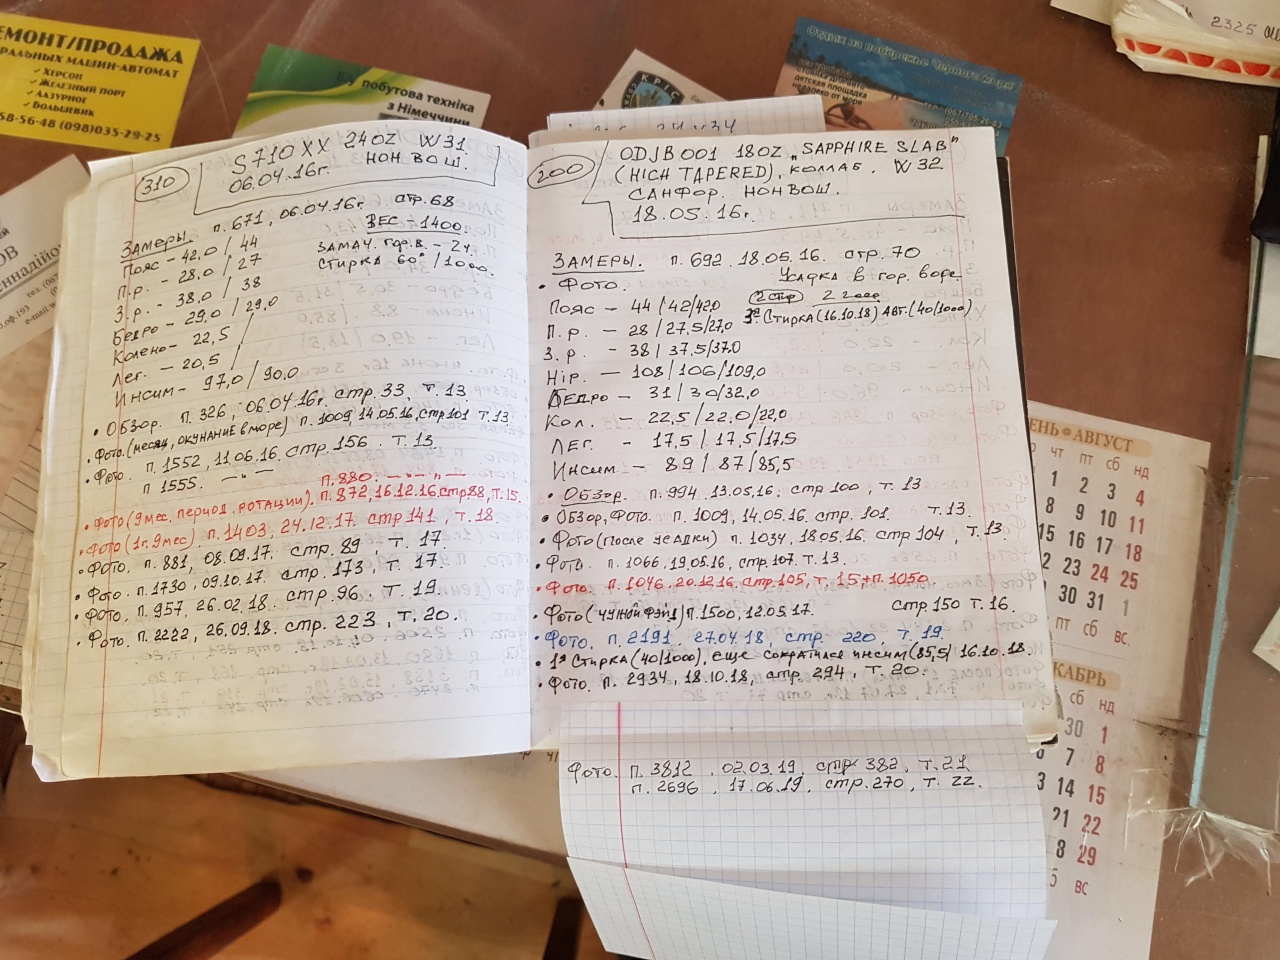 ЕМОНТ/ПРОДАЖА
РАЛЬНЫХ МАШИН-АВТОМАТ
✓ ХЕРСОН
✓ ЖЕЛЕЗНЫЙ ПОРТ
✓ ЛАЗУРНОЕ
✓ БОЛЬШЕВИК
58-56-48 (098)035-29-25
побутова техніка
з Німеччини
КРІС
Отдых на побережье Черного моря
детская площадка
недалеко от моря
2325
310
S710XX 24OZ W31
06.04.16г. НОН ВОШ.
Замеры. п.671, 06.04.16г стр.68
Пояс – 42,0 / 44
ВЕС – 1400
П.р. – 28,0 / 27
ЗАМАЧ. ГОР.В. – 2ч
З.р. – 38,0 / 38
СТИРКА 60° / 1000.
Бедро – 29,0 / 29,0
Колено – 22,5 /
Лег. – 20,5 /
Инсим – 97,0 / 90,0
• Обзор. п.326, 06.04.16г. стр.33, т.13
• Фото. (месяц, окунание в море) п.1009, 14.05.16, стр101 т.13.
• Фото. п.1552, 11.06.16. стр.156. т.13
п 1555. —"—
п.880. —"—"—
• Фото (9 мес. период. ротации). п.872, 16.12.16 стр 88, т.15.
• Фото (1г, 9мес) п.1403, 24.12.17. стр 141, т.18.
• Фото. п.881, 08.09.17. стр.89, т.17.
• Фото. п.1730, 09.10.17. стр.173, т.17
• Фото. п.957, 26.02.18. стр.96. т.19.
• Фото. п.2222, 26.09.18. стр.223, т.20.
200
ODJB001 18OZ „SAPPHIRE SLAB"
(HIGH TAPERED), КОЛЛАБ. W32
САНФОР. НОН ВОШ.
18.05.16г.
ЗАМЕРЫ. п.692. 18.05.16. стр.70
• Фото. Усадка в гор. воде
2 стир
Пояс – 44 / 42/42,0
3я Стирка (16.10.18) АВТ. (40/1000)
П.р. – 28 / 27,5/27,0
З.р. – 38 / 37,5/37,0
Hip. – 108 / 106 / 109,0
БЕДРО – 31 / 30/32,0
Кол. – 22,5 / 22.0/22,0
ЛЕГ. – 17,5 / 17,5/17,5
Инсим – 89 / 87 / 85,5
• Обзор. п.994. 13.05.16. стр 100, т.13
• Обзор, Фото. п.1009, 14.05.16. стр.101. т.13.
• Фото (после усадки) п.1034, 18.05.16. стр 104, т.13.
• Фото. п.1066. 19.05.16, стр.107. т.13.
• Фото. п.1046, 20.12.16, стр.105, т.15 + п.1050.
• Фото (чужой фэйд) п.1500, 12.05.17. стр 150 т.16.
• Фото. п.2191. 27.04.18, стр. 220. т.19.
• 1я Стирка (40/1000), ещё сократился инсим (85,5) 16.10.18.
• Фото. п.2934, 18.10.18, стр. 294, т.20.
Фото. п.3812, 02.03.19, стр 382, т.21
п.2696, 17.06.19, стр.270, т.22.
ЕНЬ • АВГУСТ
чт пт сб нд
1 2 3 4
8 9 10 11
15 16 17 18
22 23 24 25
30 31 1
пт сб вс
КАБРЬ
сб нд
30 1
6 7 8
13 14 15
21 22
29
вс